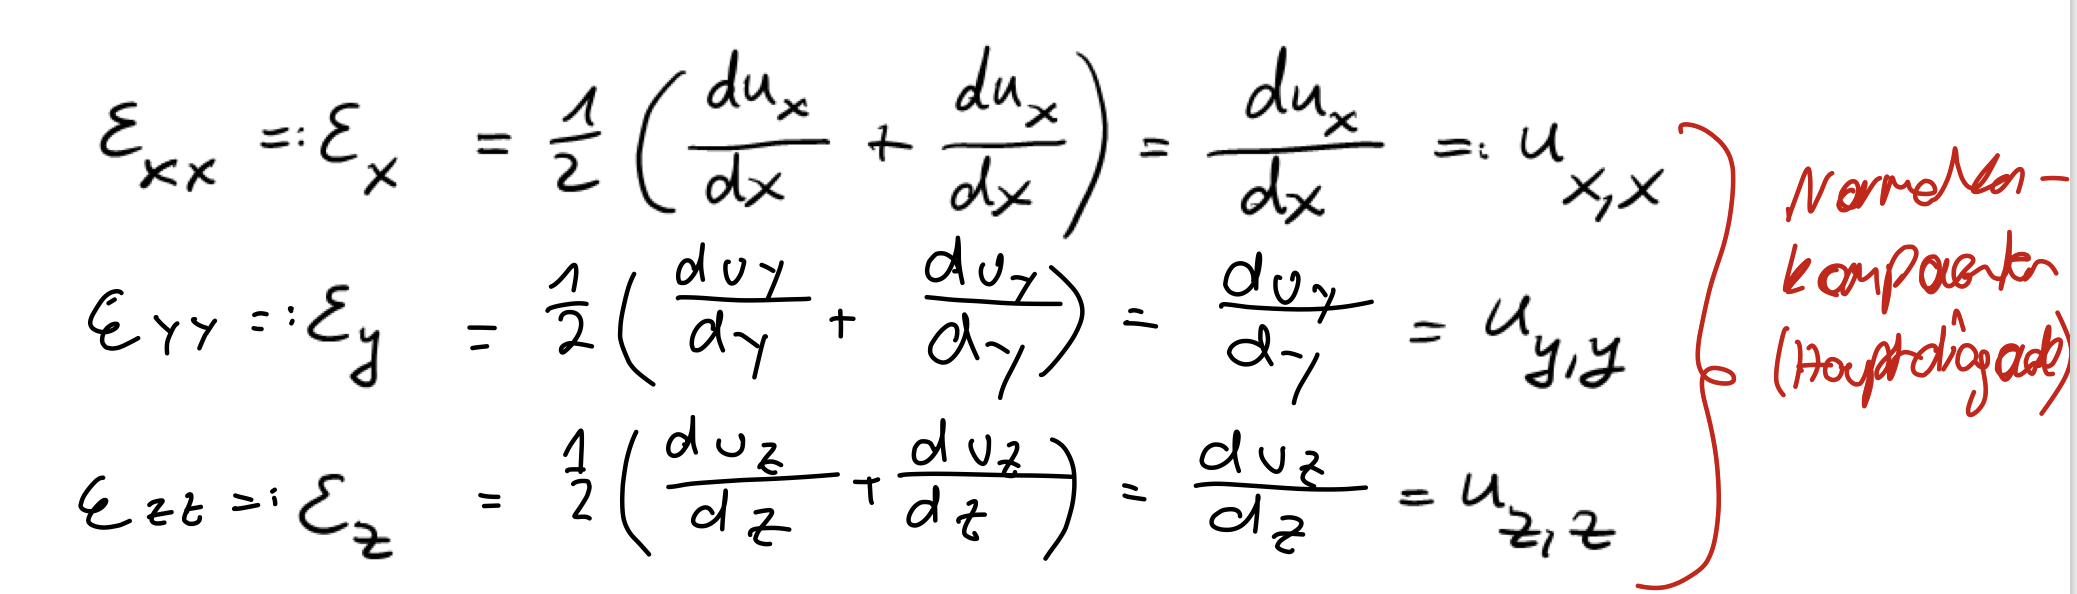 ε_xx =: ε_x = 1/2 ( du_x/dx + du_x/dx ) = du_x/dx =: u_x,x
ε_yy =: ε_y = 1/2 ( du_y/dy + du_y/dy ) = du_y/dy = u_y,y
ε_zz =: ε_z = 1/2 ( du_z/dz + du_z/dz ) = du_z/dz = u_z,z
Normalen-
komponenten